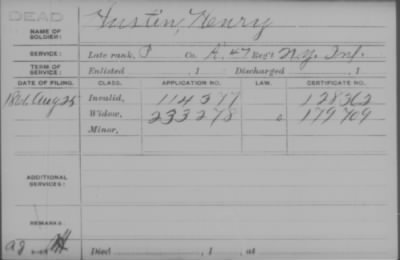 DEAD
NAME OF SOLDIER: Hustin, Henry
SERVICE: Late rank, P Co. A, 47 Reg't N.Y. Inf.
TERM OF SERVICE: Enlisted , 1 Discharged , 1
DATE OF FILING. CLASS. APPLICATION NO. LAW. CERTIFICATE NO.
Aug 25 Invalid, 114377 128362
Widow, 233278 179709
Minor,
ADDITIONAL SERVICES:
REMARKS:
Died , 1 , at